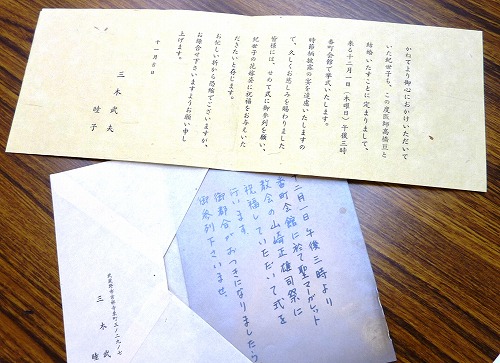 かねてより御心におかけいただいて
いた紀世子も、この度医師高橋亘と
結婚いたすことに定まりまして、
来る十二月一日(木曜日)午後三時
番町会館で挙式いたします。
時節柄披露の宴を遠慮いたしますの
で、久しくお慈しみを賜わりました
皆様には、せめて式に御参列を願い、
紀世子の花嫁姿に祝福をお与えいた
だきたいと存じます。
お忙しい折から恐縮でございますが、
お繰合せ下さいますようお願い申し
上げます。
十一月8日
三木武夫
睦子
二月一日午後三時より
番町会館に於て聖マーガレット
教会の山崎正雄司祭に
祝福していただいて式を
行います。
御都合がおつきになりましたら
御参列下さいませ。
武蔵野市吉祥寺東町五ノ二九ノ七
三木武
睦